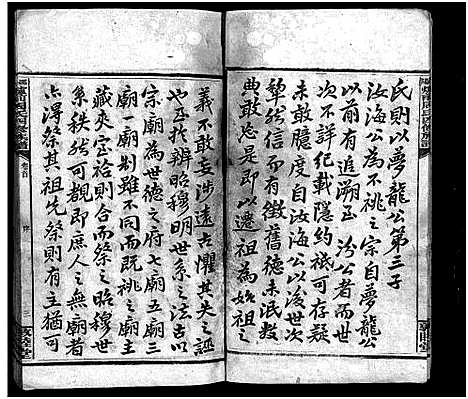 氏則以夢龍公第三子
汝海公為不祧之宗自夢龍公
以前有追溯至汾公者而世
次不詳紀載隱約祇可存疑
敢臆度自汝海公以後世次
犖然信而有徵舊德未泯數
典敢忘是以遷祖為始祖之
義不敢妄涉遠古懼其失之誣
也至於辨昭穆明世系之法古以
宗廟為世德之府七廟五廟三
廟一廟制雖不同而既祧之廟主
藏夾室祫則合而祭之昭穆世
系秩然可觀即庶人之無廟者
亦得祭其祖先祭則有主猶可
卷首
序
三
敦睦堂